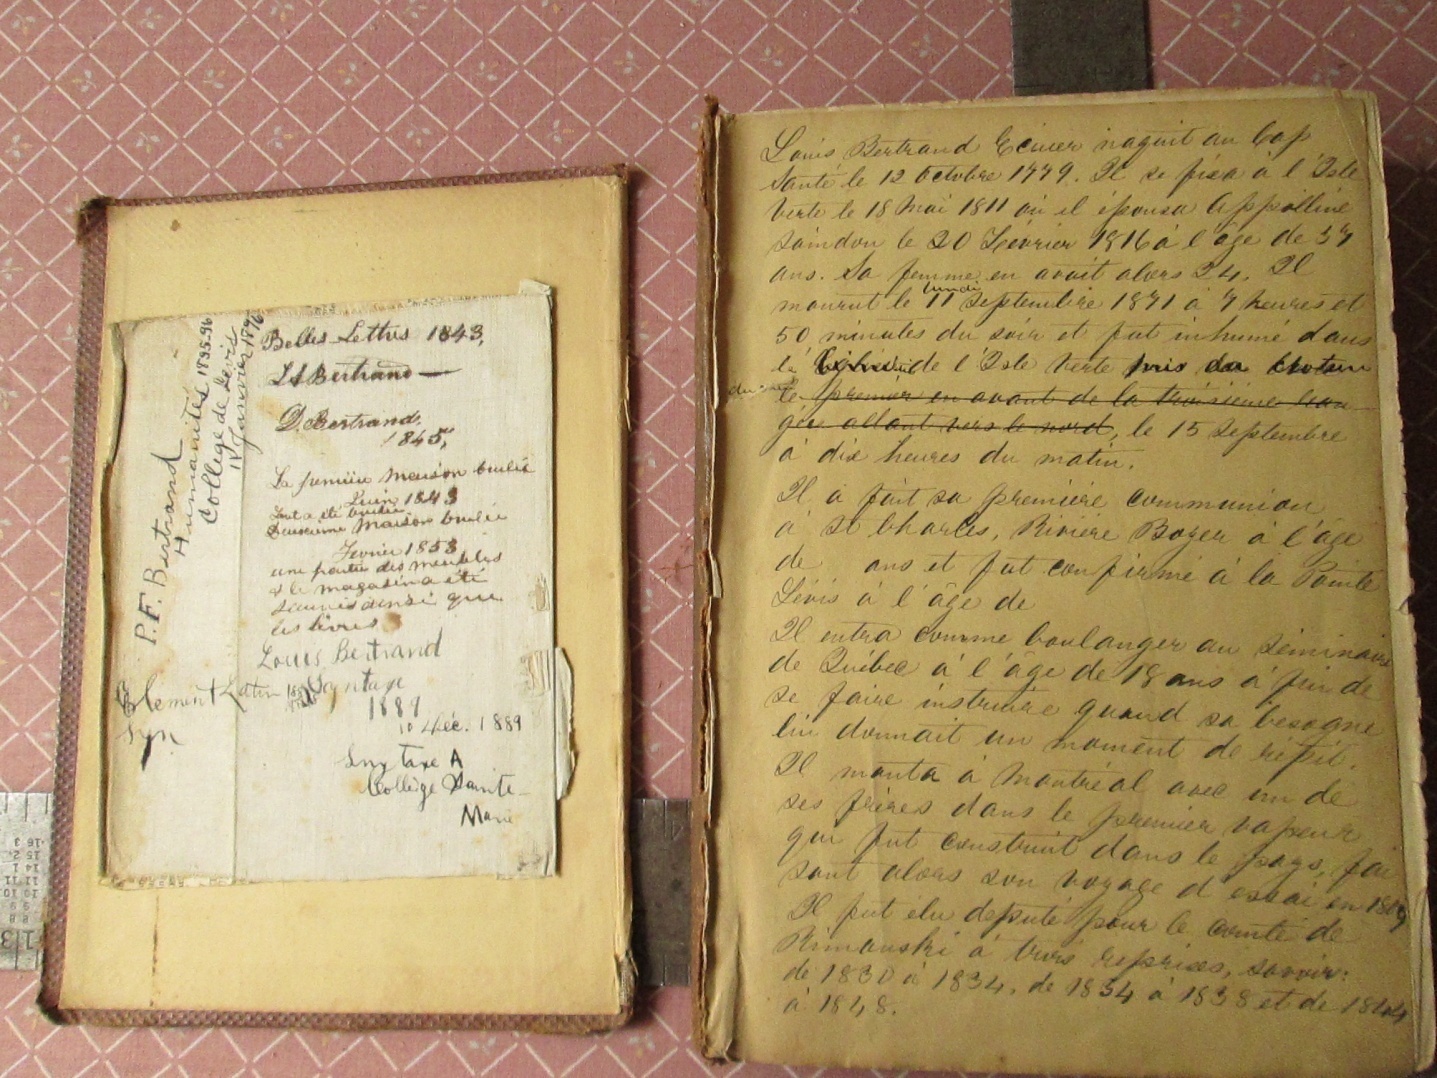 Belles-Lettres 1843,
L A Bertrand
D. Bertrand.
1845,
La première maison brulée
Juin 1843
tout a été brulée
Deuxième Maison brulée
Fevrier 1853
une partie des meubles
& le magasin a été
sauvés ainsi que
les livres
Louis Bertrand
Syntax
1889
10 Déc. 1889
Syntaxe A
Collège Sainte-
Marie
P. F. Bertrand
Humanités 1895-96
Collège de Lévis
Janvier 1896
Element Latin
Louis Bertrand Ecuier naquit au Cap
Santé le 12 Octobre 1779. Il se fixa à l'Isle
Verte le 18 Mai 1811 où il épousa Appolline
Saindon le 20 Février 1816 à l'âge de 37
ans. Sa femme en avait alors 24. Il
mourut le lundi 11 Septembre 1871 à 7 heures et
50 minutes du soir et fut inhumé dans
l' de l'Isle Verte près du
le premier en avant de la troisième ran
gée allant vers le nord, le 15 Septembre
à dix heures du matin.
Il a fait sa première communion
à St Charles, Rivière Boyer à l'âge
de ans et fut confirmé à la Pointe
Lévis à l'âge de
Il entra comme boulanger au séminaire
de Québec à l'âge de 18 ans à fin de
se faire instruire quand sa besogne
lui donnait un moment de répit.
Il monta à Montréal avec un de
ses frères dans le premier vapeur
qui fut construit dans le pays, fai
sant alors son voyage d'essai en 1809
Il fut élu deputé pour le comté de
Rimouski à trois reprises, savoir:
de 1830 à 1834, de 1834 à 1838 et de 1844
à 1848.